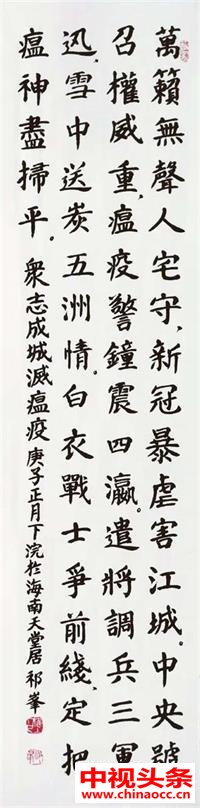 萬籟無聲人宅守、新冠暴虐害江城。中央號
召權威重、瘟疫警鐘震四瀛。遣將調兵三軍
迅、雪中送炭五洲情。白衣戰士爭前綫、定把
瘟神盡掃平。眾志成城滅瘟疫 庚子正月下浣於海南天堂居 祁峯
中视头条
www.chinaocc.cn